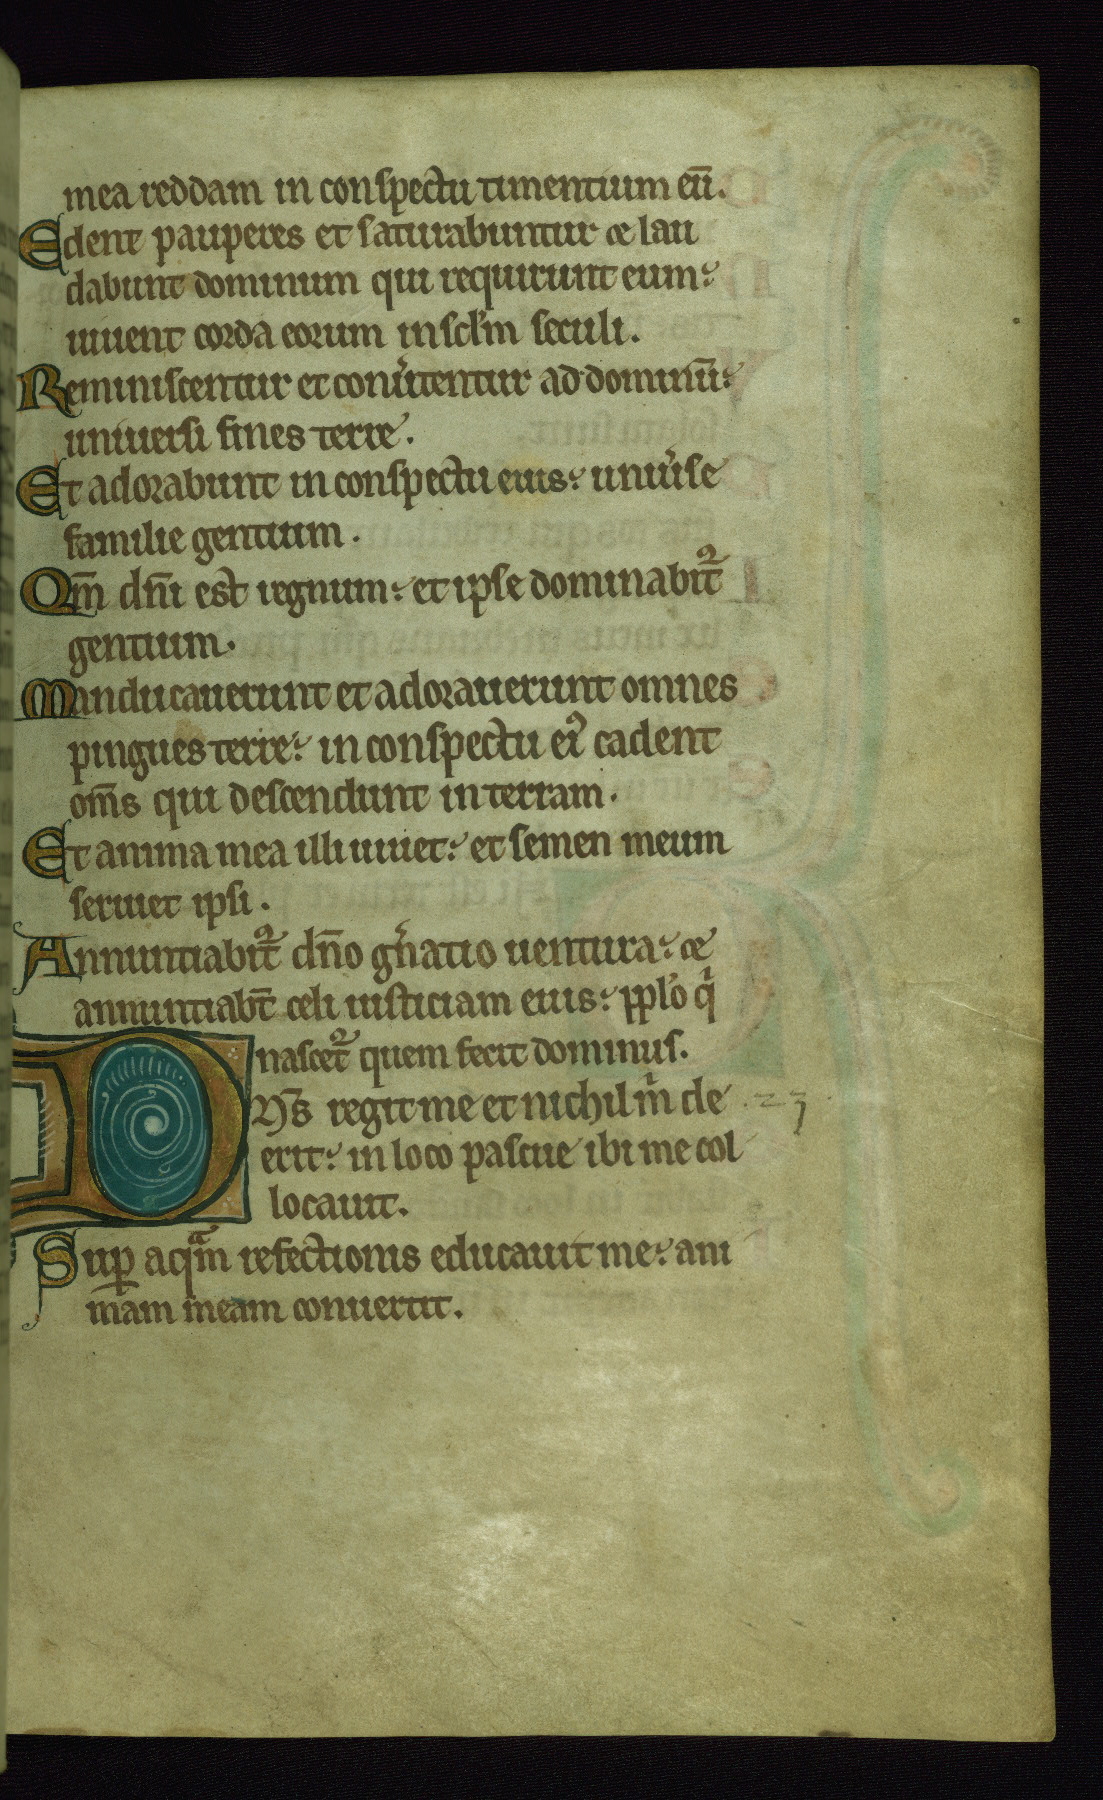 mea reddam in conspectu timentium eū.
Edent pauperes et saturabuntur & lau
dabunt dominum qui requirunt eum:
uiuent corda eorum in scl̄m seculi.
Reminiscentur et conu̓tentur ad dominū:
uniuersi fines terre.
Et adorabunt in conspectu eius: uniu̓se
familie gentium.
Qm̄ dn̄i est regnum: et ipse dominabit᷑
gentium.
Manducauerunt et adorauerunt omnes
pingues terre: in conspectu eiꝰ cadent
om̄s qui descendunt in terram.
Et anima mea illi uiuet: et semen meum
seruiet ipsi.
Annuntiabit᷑ dn̄o gn̓atio uentura: &
annuntiabt̄ celi iusticiam eius: ppl̓o qͥ
nascet᷑ quem fecit dominus.
Dn̄s regit me et nichil m̍ de 23
erit: in loco pascue ibi me col
locauit.
Suꝑ aqᷓm refectionis educauit me: ani
mam meam conuertit.